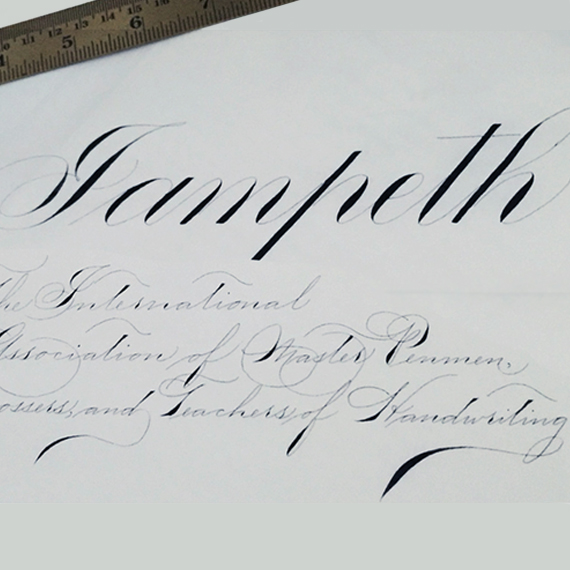 5 6 7
Iampeth
The International
Association of Master Penmen,
ossers, and Teachers of Handwriting